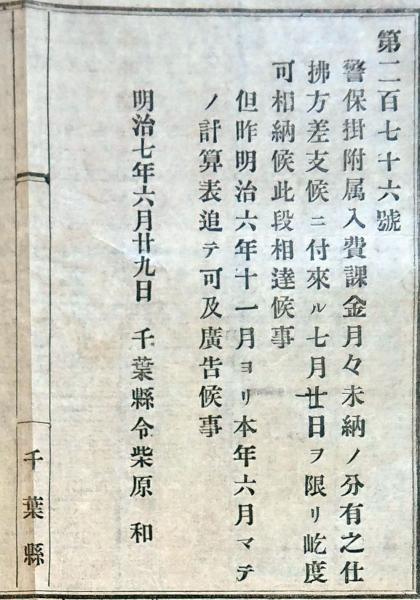 第二百七十六號
警保掛附属入費課金月々未納ノ分有之仕
拂方差支候ニ付來ル七月廿日ヲ限リ屹度
可相納候此段相達候事
但昨明治六年十一月ヨリ本年六月マテ
ノ計算表追テ可及廣告候事
明治七年六月廿九日 千葉縣令柴原 和
千葉縣